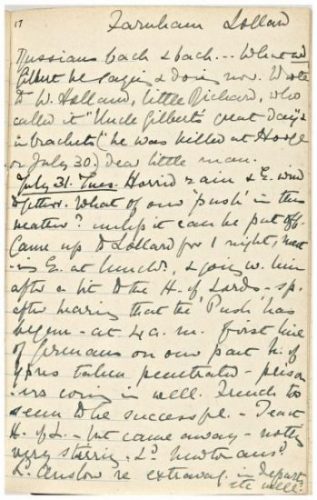 17
Farnham Lollard
Russians back & back... What wd
Gilbert be saying & doing now. Wrote
to W. Holland, little Richard, who
called it "Uncle Gilbert's great day" &
in brackets ("he was killed at Hooge
on July 30, dear little man.
July 31. Tues. Horrid rain & E. wind
together. What of our 'push' in this
weather? unless it can be put off.
Came up to Lollard for 1 night, meet
-ing E. at lunch, & going w. him
after a bit to the H. of Lords - sp.
after hearing that the 'Push' has
begun - at 4 a.m. First line
of Germans on our part N. of
Ypres taken, penetrated - prison
-ers coming in well. French too
seem to be successful. - Tea at
H. of L. - but came away - nothing
very stirring. Ld Newton ans
Ld Anslow re extravag. in depart